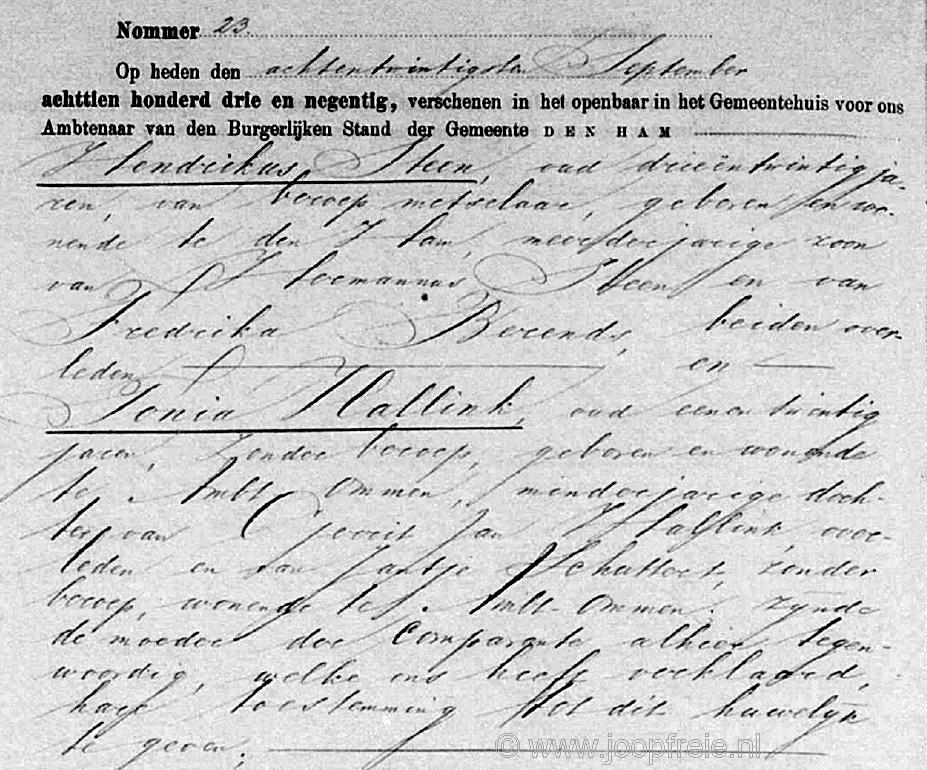 Nommer 23.
Op heden den achtentwintigsten September
achttien honderd drie en negentig, verschenen in het openbaar in het Gemeentehuis voor ons
Ambtenaar van den Burgerlijken Stand der Gemeente DEN HAM
Hendrikus Steen, oud drieëntwintig ja-
ren, van beroep metselaar, geboren en wo-
nende te den Ham, meerderjarige zoon
van Hermannus Steen en van
Fredrika Berends, beiden over-
leden en
Tonia Hallink, oud eenentwintig
jaren, zonder beroep, geboren en wonende
te Ambt Ommen, minderjarige doch-
ter van Gerrit Jan Hallink, over-
leden en van Jantje Schuttert, zonder
beroep, wonende te Ambt-Ommen. zynde
de moeder der Comparante alhier tegen-
woordig, welke ons heeft verklaard,
hare toestemming tot dit huwelyk
te geven;
© www.joopfreie.nl